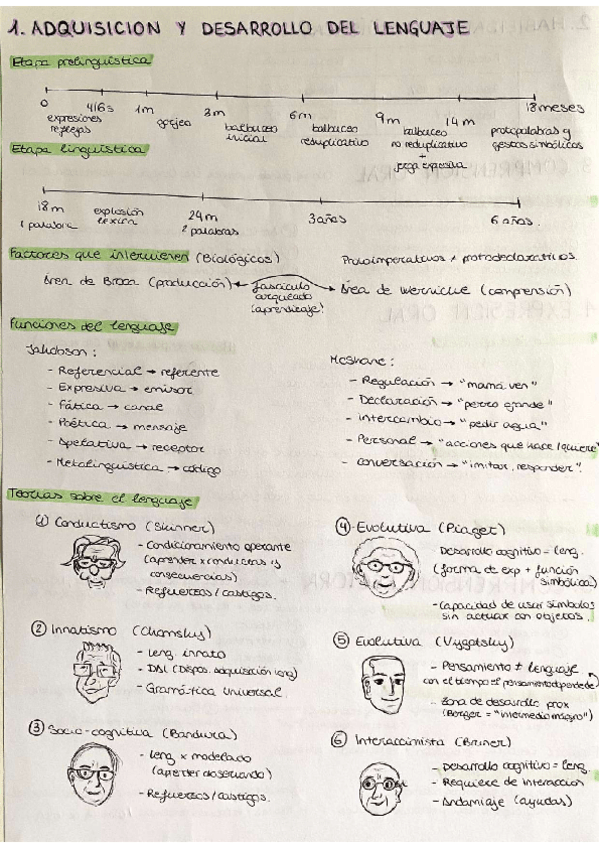 1. ADQUISICION Y DESARROLLO DEL LENGUAJE
Etapa prelinguistica
0 4/6s 1m 3m 6m 9m 14m 18 meses
expresiones reflejas
gorjeo
balbuceo inicial
balbuceo reduplicativo
balbuceo no reduplicativo + jerga expresiva
protopalabras y gestos simbólicos
Etapa linguistica
18m 24m 3 años 6 años.
1 palabra
explosión léxica
2 palabras
Factores que intervienen (Biológicos)
Protoimperativos y protodeclarativos.
Área de Broca (producción)
fascículo arqueado (aprendizaje)
Área de Wernicke (comprensión)
Funciones del lenguaje
Jakobson:
- Referencial → referente
- Expresiva → emisor
- Fática → canal
- Poética → mensaje
- Apelativa → receptor
- Metalinguistica → código
McShane:
- Regulación → "mamá ven"
- Declaración → "perro grande"
- intercambio → "pedir agua"
- Personal → "acciones que hace/quiere"
- conversación → "imitar, responder".
Teorias sobre el lenguaje
① Conductismo (Skinner)
- Condicionamiento operante
(aprender x conducta y
consecuencias)
- Refuerzos / castigos.
② Innatismo (Chomsky)
- Leng. innato
- DAL (Dispos. adquisición leng)
- Gramática Universal.
③ Socio-cognitiva (Bandura)
- Leng x modelado
(aprender observando)
- Refuerzos / castigos.
④ Evolutiva (Piaget)
Desarrollo cognitivo = leng.
(forma de exp + función
simbólica)
- Capacidad de usar símbolos
sin actuar con objetos.
⑤ Evolutiva (Vygotsky)
- Pensamiento ≠ lenguaje
con el tiempo el pensamiento depende de
- Zona de desarrollo prox
(Berger = "intermedio mágico")
⑥ Interaccimista (Bruner)
- Desarrollo cognitivo = leng.
- Requiere de interacción
- Andamiaje (ayudas)